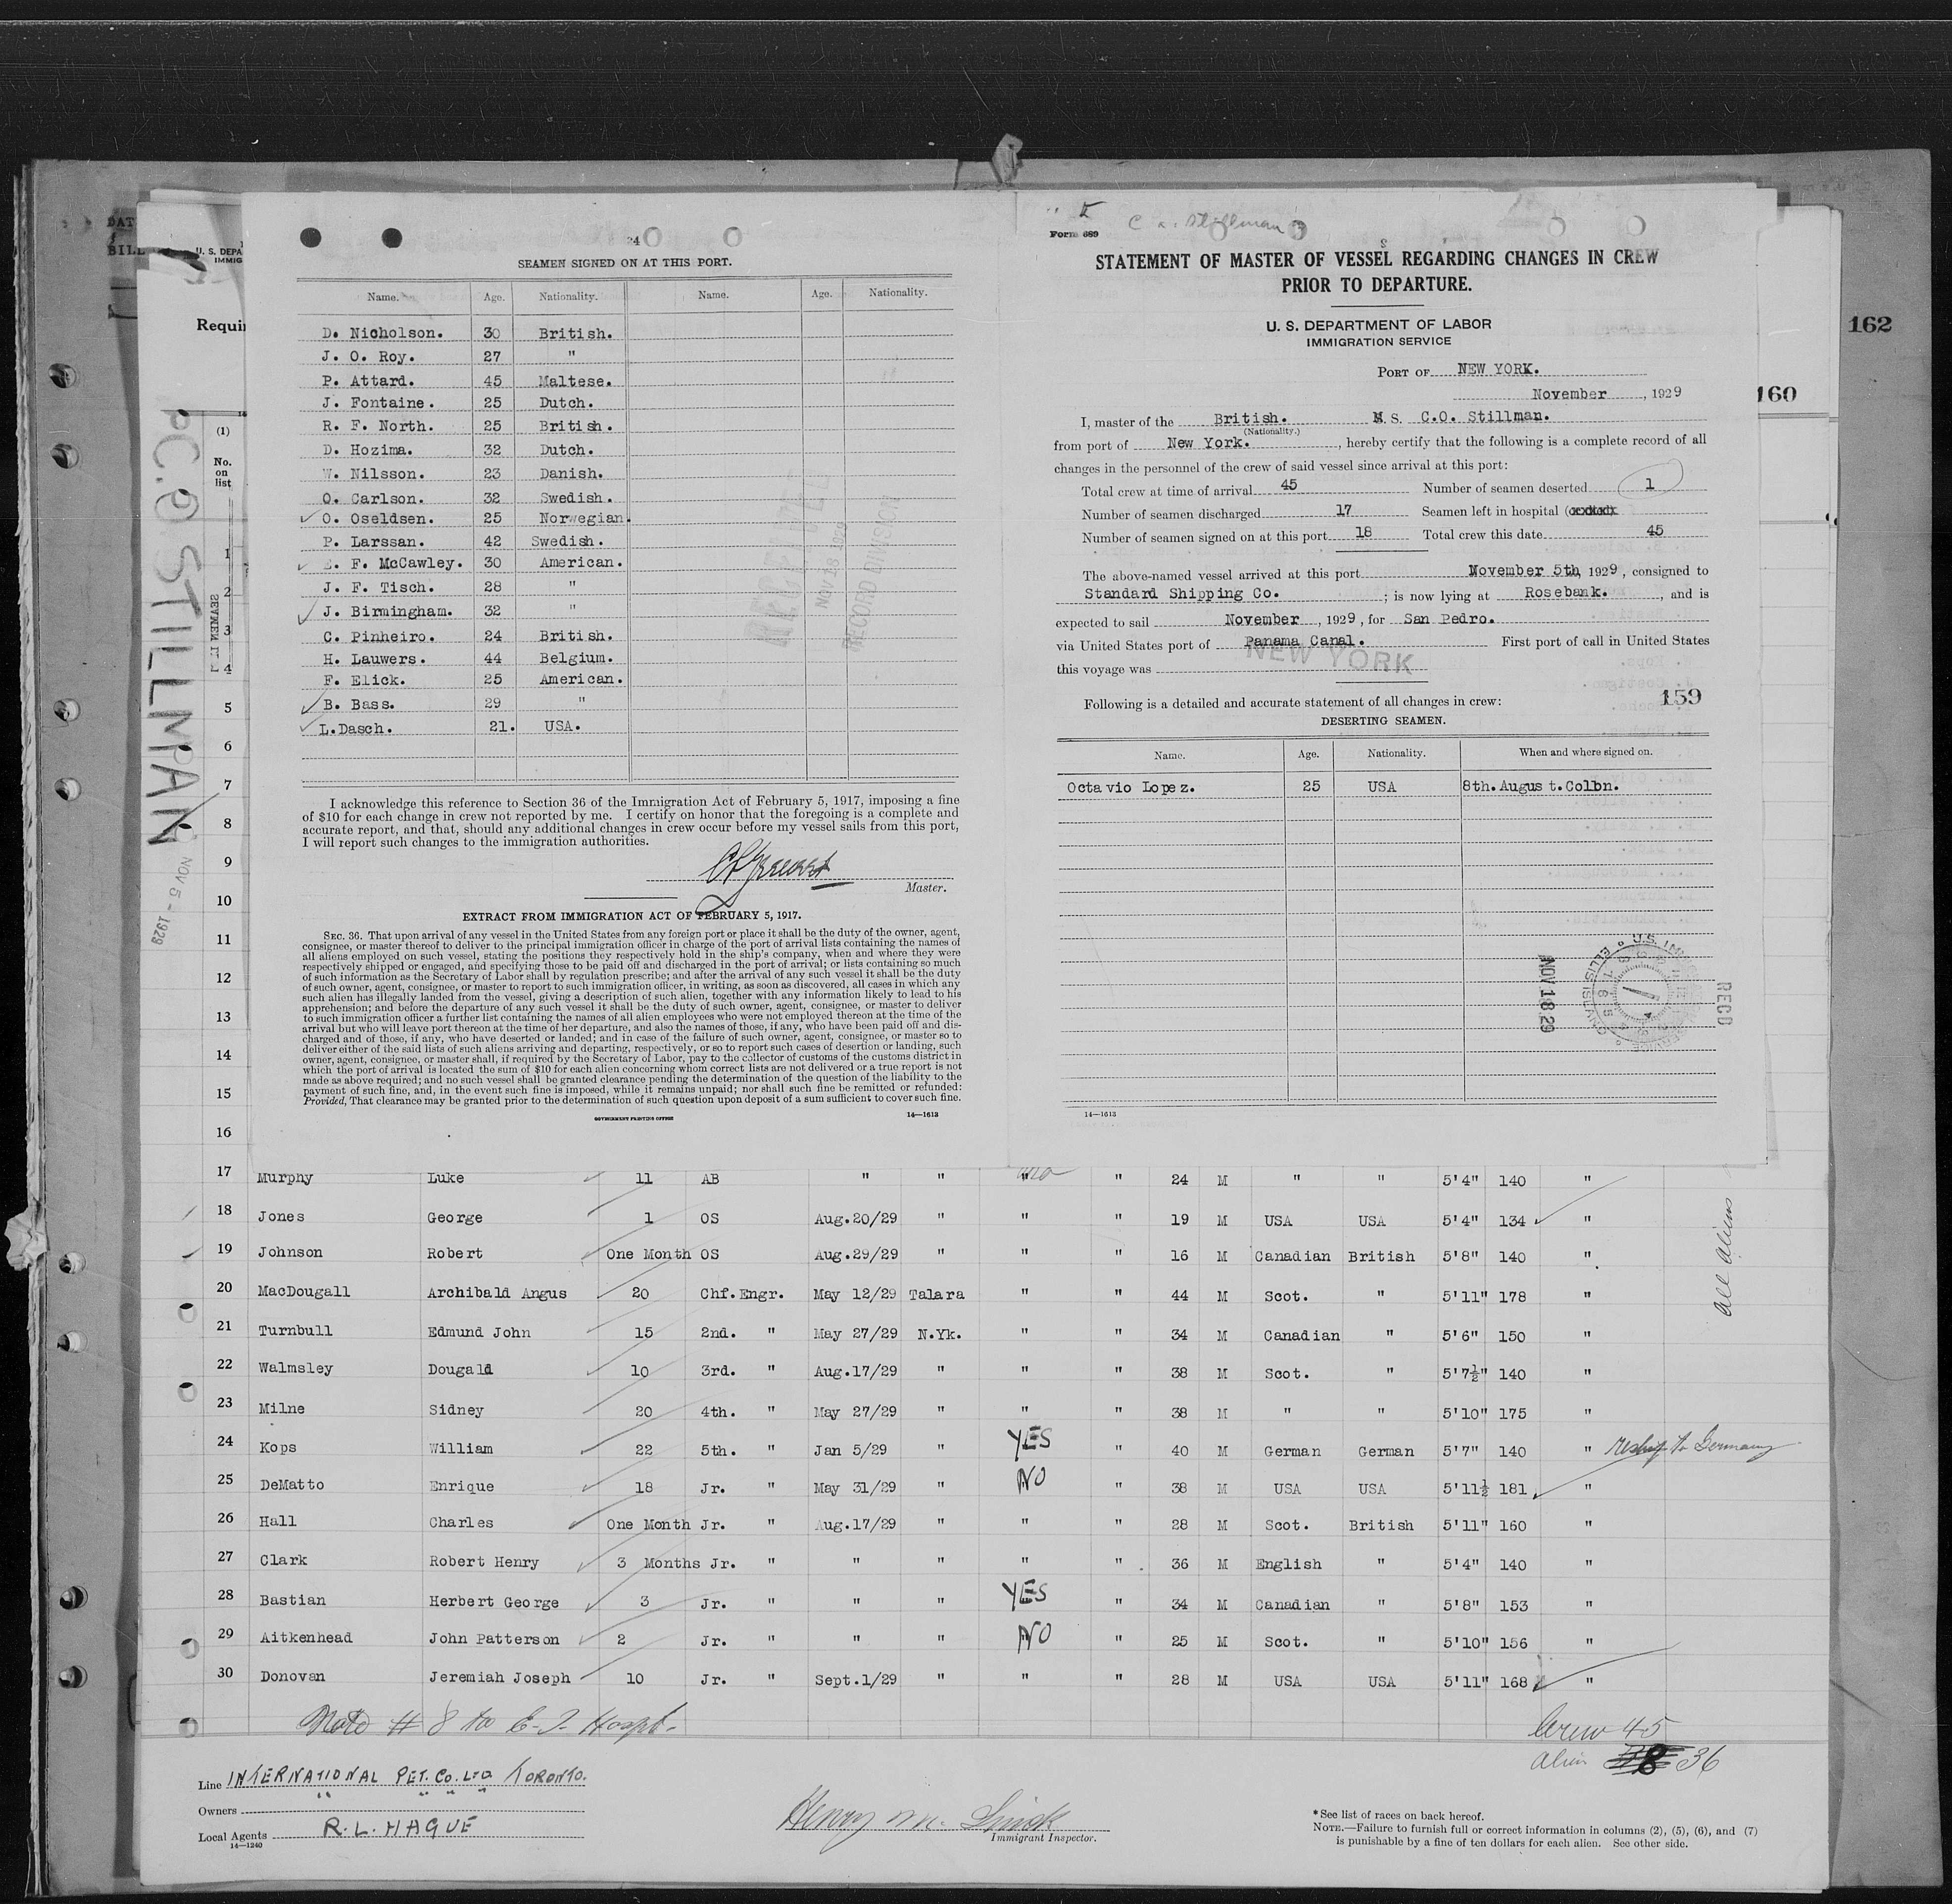 DAT
BILL
U. S. DEPA
IMMIG
Requi
(1)
No.
on
list
SEAMEN
C.O STILLMAN
NOV 5 - 1929
1
2
3
4
5
6
7
8
9
10
11
12
13
14
15
16
24
SEAMEN SIGNED ON AT THIS PORT.
Name. Age. Nationality. Name. Age. Nationality.
D. Nicholson. 30 British.
J. O. Roy. 27 "
P. Attard. 45 Maltese.
J. Fontaine. 25 Dutch.
R. F. North. 25 British.
D. Hozima. 32 Dutch.
W. Nilsson. 23 Danish.
O. Carlson. 32 Swedish.
O. Oseldsen. 25 Norwegian.
P. Larssan. 42 Swedish.
F. McCawley. 30 American.
J. F. Tisch. 28 "
J. Birmingham. 32 "
C. Pinheiro. 24 British.
H. Lauwers. 44 Belgium.
F. Elick. 25 American.
B. Bass. 29 "
L.Dasch. 21. USA.
NOV 18 1929
RECORD DIVISION
I acknowledge this reference to Section 36 of the Immigration Act of February 5, 1917, imposing a fine
of $10 for each change in crew not reported by me. I certify on honor that the foregoing is a complete and
accurate report, and that, should any additional changes in crew occur before my vessel sails from this port,
I will report such changes to the immigration authorities.
Master.
EXTRACT FROM IMMIGRATION ACT OF FEBRUARY 5, 1917.
SEC. 36. That upon arrival of any vessel in the United States from any foreign port or place it shall be the duty of the owner, agent,
consignee, or master thereof to deliver to the principal immigration officer in charge of the port of arrival lists containing the names of
all aliens employed on such vessel, stating the positions they respectively hold in the ship's company, when and where they were
respectively shipped or engaged, and specifying those to be paid off and discharged in the port of arrival; or lists containing so much
of such information as the Secretary of Labor shall by regulation prescribe; and after the arrival of any such vessel it shall be the duty
of such owner, agent, consignee, or master to report to such immigration officer, in writing, as soon as discovered, all cases in which any
such alien has illegally landed from the vessel, giving a description of such alien, together with any information likely to lead to his
apprehension; and before the departure of any such vessel it shall be the duty of such owner, agent, consignee, or master to deliver
to such immigration officer a further list containing the names of all alien employees who were not employed thereon at the time of the
arrival but who will leave port thereon at the time of her departure, and also the names of those, if any, who have been paid off and dis-
charged and of those, if any, who have deserted or landed; and in case of the failure of such owner, agent, consignee, or master so to
deliver either of the said lists of such aliens arriving and departing, respectively, or so to report such cases of desertion or landing, such
owner, agent, consignee, or master shall, if required by the Secretary of Labor, pay to the collector of customs of the customs district in
which the port of arrival is located the sum of $10 for each alien concerning whom correct lists are not delivered or a true report is not
made as above required; and no such vessel shall be granted clearance pending the determination of the question of the liability to the
payment of such fine, and, in the event such fine is imposed, while it remains unpaid; nor shall such fine be remitted or refunded:
Provided, That clearance may be granted prior to the determination of such question upon deposit of a sum sufficient to cover such fine.
GOVERNMENT PRINTING OFFICE 14—1613
Form 689
C. O. Stillman
STATEMENT OF MASTER OF VESSEL REGARDING CHANGES IN CREW
PRIOR TO DEPARTURE.
U. S. DEPARTMENT OF LABOR
IMMIGRATION SERVICE
PORT OF NEW YORK.
November , 1929
I, master of the British. M. S. C.O. Stillman.
(Nationality.)
from port of New York. , hereby certify that the following is a complete record of all
changes in the personnel of the crew of said vessel since arrival at this port:
Total crew at time of arrival 45 Number of seamen deserted 1
Number of seamen discharged 17 Seamen left in hospital
Number of seamen signed on at this port 18 Total crew this date 45
The above-named vessel arrived at this port November 5th, 1929, consigned to
Standard Shipping Co. ; is now lying at Rosebank. , and is
expected to sail November , 1929, for San Pedro.
via United States port of Panama Canal. First port of call in United States
this voyage was NEW YORK
159
Following is a detailed and accurate statement of all changes in crew:
DESERTING SEAMEN.
Name. Age. Nationality. When and where signed on.
Octavio Lopez. 25 USA 8th.August.Colbn.
NOV 18 29
RECD
14—1613
160
162
17 Murphy Luke 11 AB " " " " 24 M " " 5'4" 140 "
18 Jones George 1 OS Aug.20/29 " " " 19 M USA USA 5'4" 134 "
19 Johnson Robert One Month OS Aug.29/29 " " " 16 M Canadian British 5'8" 140 "
20 MacDougall Archibald Angus 20 Chf.Engr. May 12/29 Talara " " 44 M Scot. " 5'11" 178 "
21 Turnbull Edmund John 15 2nd. " May 27/29 N.Yk. " " 34 M Canadian " 5'6" 150 "
22 Walmsley Dougald 10 3rd. " Aug.17/29 " " " 38 M Scot. " 5'7½" 140 "
23 Milne Sidney 20 4th. " May 27/29 " " " 38 M " " 5'10" 175 "
24 Kops William 22 5th. " Jan 5/29 " YES " 40 M German German 5'7" 140 " reship to Germany
25 DeMatto Enrique 18 Jr. " May 31/29 " NO " 38 M USA USA 5'11½ 181 "
26 Hall Charles One Month Jr. " Aug.17/29 " " " 28 M Scot. British 5'11" 160 "
27 Clark Robert Henry 3 Months Jr. " " " " " 36 M English " 5'4" 140 "
28 Bastian Herbert George 3 Jr. " " " YES " 34 M Canadian " 5'8" 153 "
29 Aitkenhead John Patterson 2 Jr. " " " NO " 25 M Scot. " 5'10" 156 "
30 Donovan Jeremiah Joseph 10 Jr. " Sept.1/29 " " " 28 M USA USA 5'11" 168 "
all aliens
Note # 8 to E. I. Hospt.
Crew 45
Alien 36
Line INTERNATIONAL PET. CO. LTD TORONTO.
Owners " " " "
Local Agents R. L. HAGUE
14—1240
Henry
Immigrant Inspector.
*See list of races on back hereof.
NOTE.—Failure to furnish full or correct information in columns (2), (5), (6), and (7)
is punishable by a fine of ten dollars for each alien. See other side.